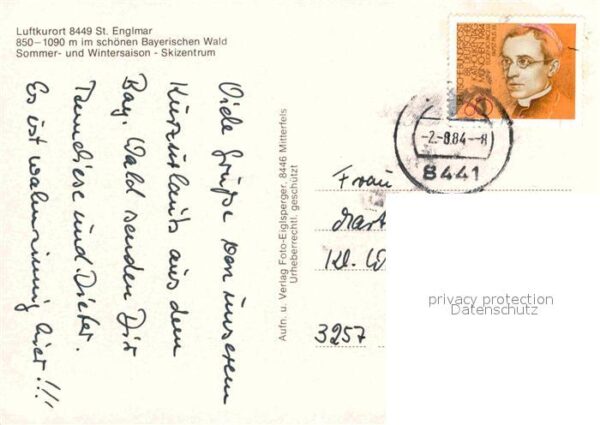 Luftkurort 8449 St. Englmar
850–1090 m im schönen Bayerischen Wald
Sommer- und Wintersaison - Skizentrum
Viele Grüße von unserem
Kurzurlaub aus dem
Bay. Wald senden Dir
und Dieter.
Es ist wahnsinnig hier!!!
Aufn. u. Verlag Foto-Eiglsperger, 8446 Mitterfels
Urheberrechtl. geschützt
60
-2.-8.84-
8441
Frau
Kl.
3257
privacy protection
Datenschutz